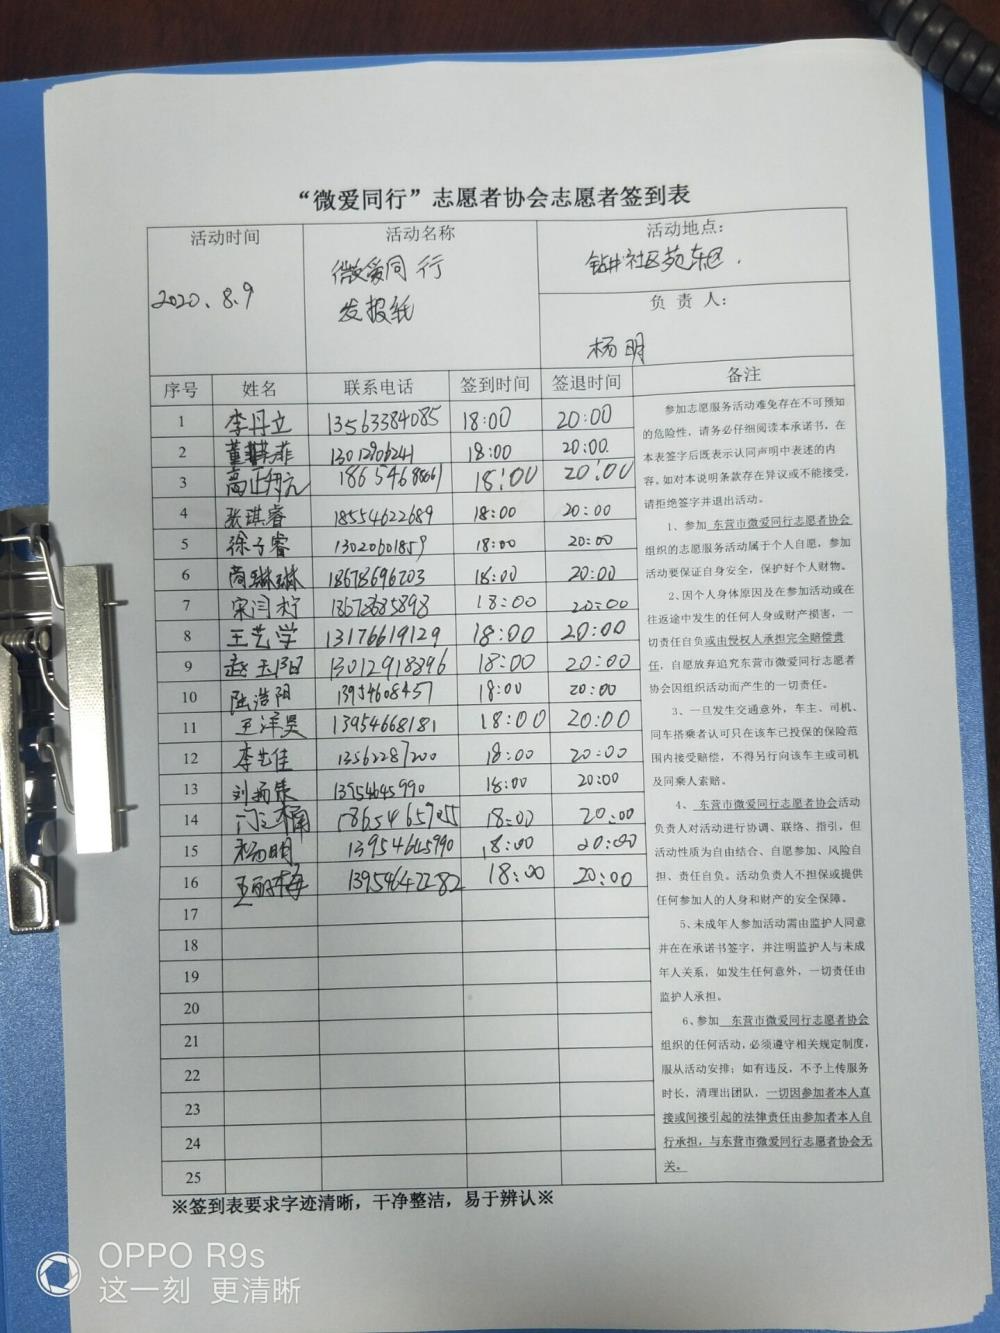 “微爱同行”志愿者协会志愿者签到表
活动时间 活动名称 活动地点：
2020、8.9 微爱同行 发报纸 钻井社区苑东区.
负 责 人：
杨明
序号 姓名 联系电话 签到时间 签退时间 备注
1 李丹立 13563384085 18:00 20:00
2 13012906241 18:00 20:00
3 18:00 20:00
4 张琪睿 18554622689 18:00 20:00
5 徐子睿 13020601859 18:00 20:00
6 18678696703 18:00 20:00
7 18:00 20:00
8 王艺学 13176619129 18:00 20:00
9 赵玉阳 13012918396 18:00 20:00
10 陆浩阳 13954608457 18:00 20:00
11 王洋昊 13954668181 18:00 20:00
12 李兆佳 13562287200 18:00 20:00
13 13954645990 18:00 20:00
14 18:00 20:00
15 杨明 13954645990 18:00 20:00
16 王丽梅 13954642282 18:00 20:00
17
18
19
20
21
22
23
24
25
参加志愿服务活动难免存在不可预知
的危险性，请务必仔细阅读本承诺书，在
本表签字后既表示认同声明中表述的内
容。如对本说明条款存在异议或不能接受，
请拒绝签字并退出活动。
1、参加 东营市微爱同行志愿者协会
组织的志愿服务活动属于个人自愿，参加
活动要保证自身安全，保护好个人财物。
2、因个人身体原因及在参加活动或在
往返途中发生的任何人身或财产损害，一
切责任自负或由侵权人承担完全赔偿责
任，自愿放弃追究东营市微爱同行志愿者
协会因组织活动而产生的一切责任。
3、一旦发生交通意外，车主、司机、
同车搭乘者认可只在该车已投保的保险范
围内接受赔偿，不得另行向该车主或司机
及同乘人索赔。
4、 东营市微爱同行志愿者协会活动
负责人对活动进行协调、联络、指引，但
活动性质为自由结合、自愿参加、风险自
担、责任自负。活动负责人不担保或提供
任何参加人的人身和财产的安全保障。
5、未成年人参加活动需由监护人同意
并在在承诺书签字，并注明监护人与未成
年人关系，如发生任何意外，一切责任由
监护人承担。
6、参加 东营市微爱同行志愿者协会
组织的任何活动，必须遵守相关规定制度，
服从活动安排；如有违反，不予上传服务
时长，清理出团队，一切因参加者本人直
接或间接引起的法律责任由参加者本人自
行承担，与东营市微爱同行志愿者协会无
关。
※签到表要求字迹清晰，干净整洁，易于辨认※
OPPO R9s
这一刻 更清晰